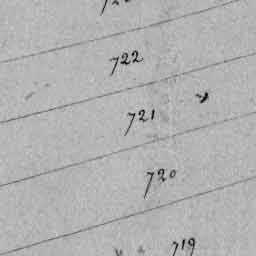 722
721
720
719